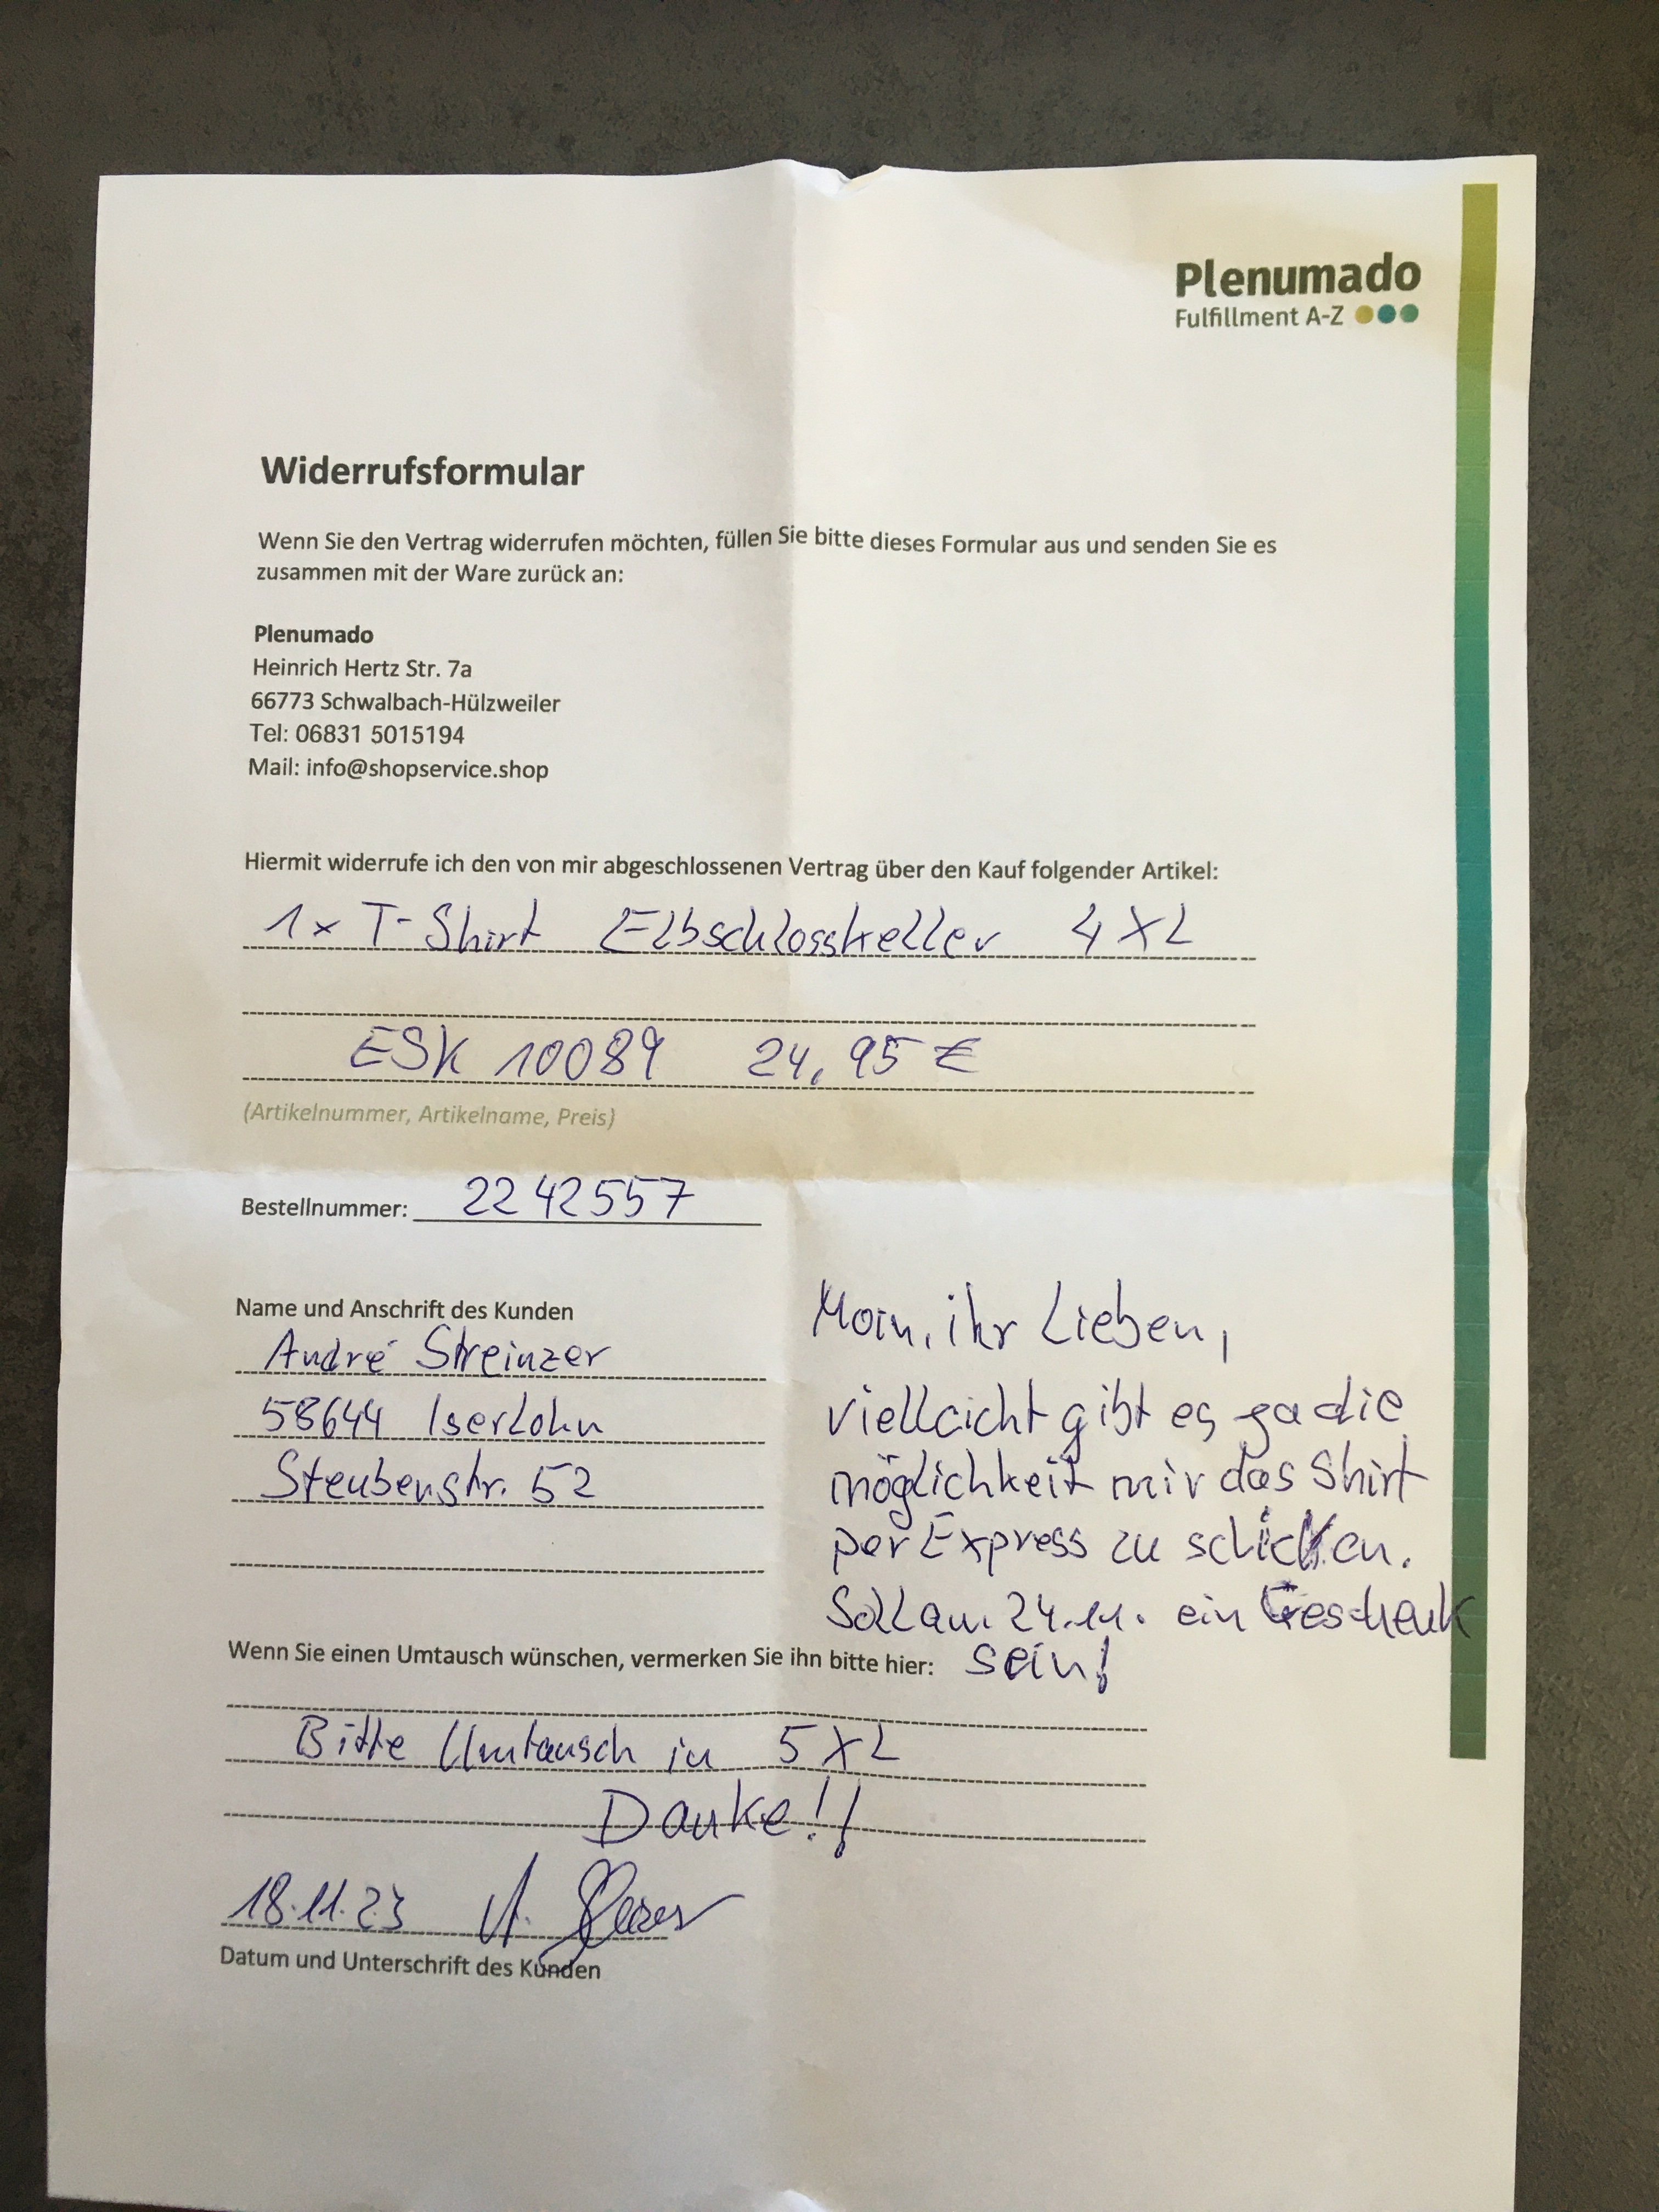 Plenumado
Fulfillment A-Z
Widerrufsformular
Wenn Sie den Vertrag widerrufen möchten, füllen Sie bitte dieses Formular aus und senden Sie es
zusammen mit der Ware zurück an:
Plenumado
Heinrich Hertz Str. 7a
66773 Schwalbach-Hülzweiler
Tel: 06831 5015194
Mail: info@shopservice.shop
Hiermit widerrufe ich den von mir abgeschlossenen Vertrag über den Kauf folgender Artikel:
1x T-Shirt Elbschlosskeller 4XL
ESK 10089 24,95 €
(Artikelnummer, Artikelname, Preis)
Bestellnummer: 2242557
Name und Anschrift des Kunden
André Streinzer
58644 Iserlohn
Steubenstr. 52
Moin, ihr Lieben,
vielleicht gibt es ja die
möglichkeit mir das Shirt
per Express zu schicken.
Soll am 24.11. ein Geschenk
sein!
Wenn Sie einen Umtausch wünschen, vermerken Sie ihn bitte hier:
Bitte Umtausch in 5XL
Danke!!
18.11.23 A.
Datum und Unterschrift des Kunden